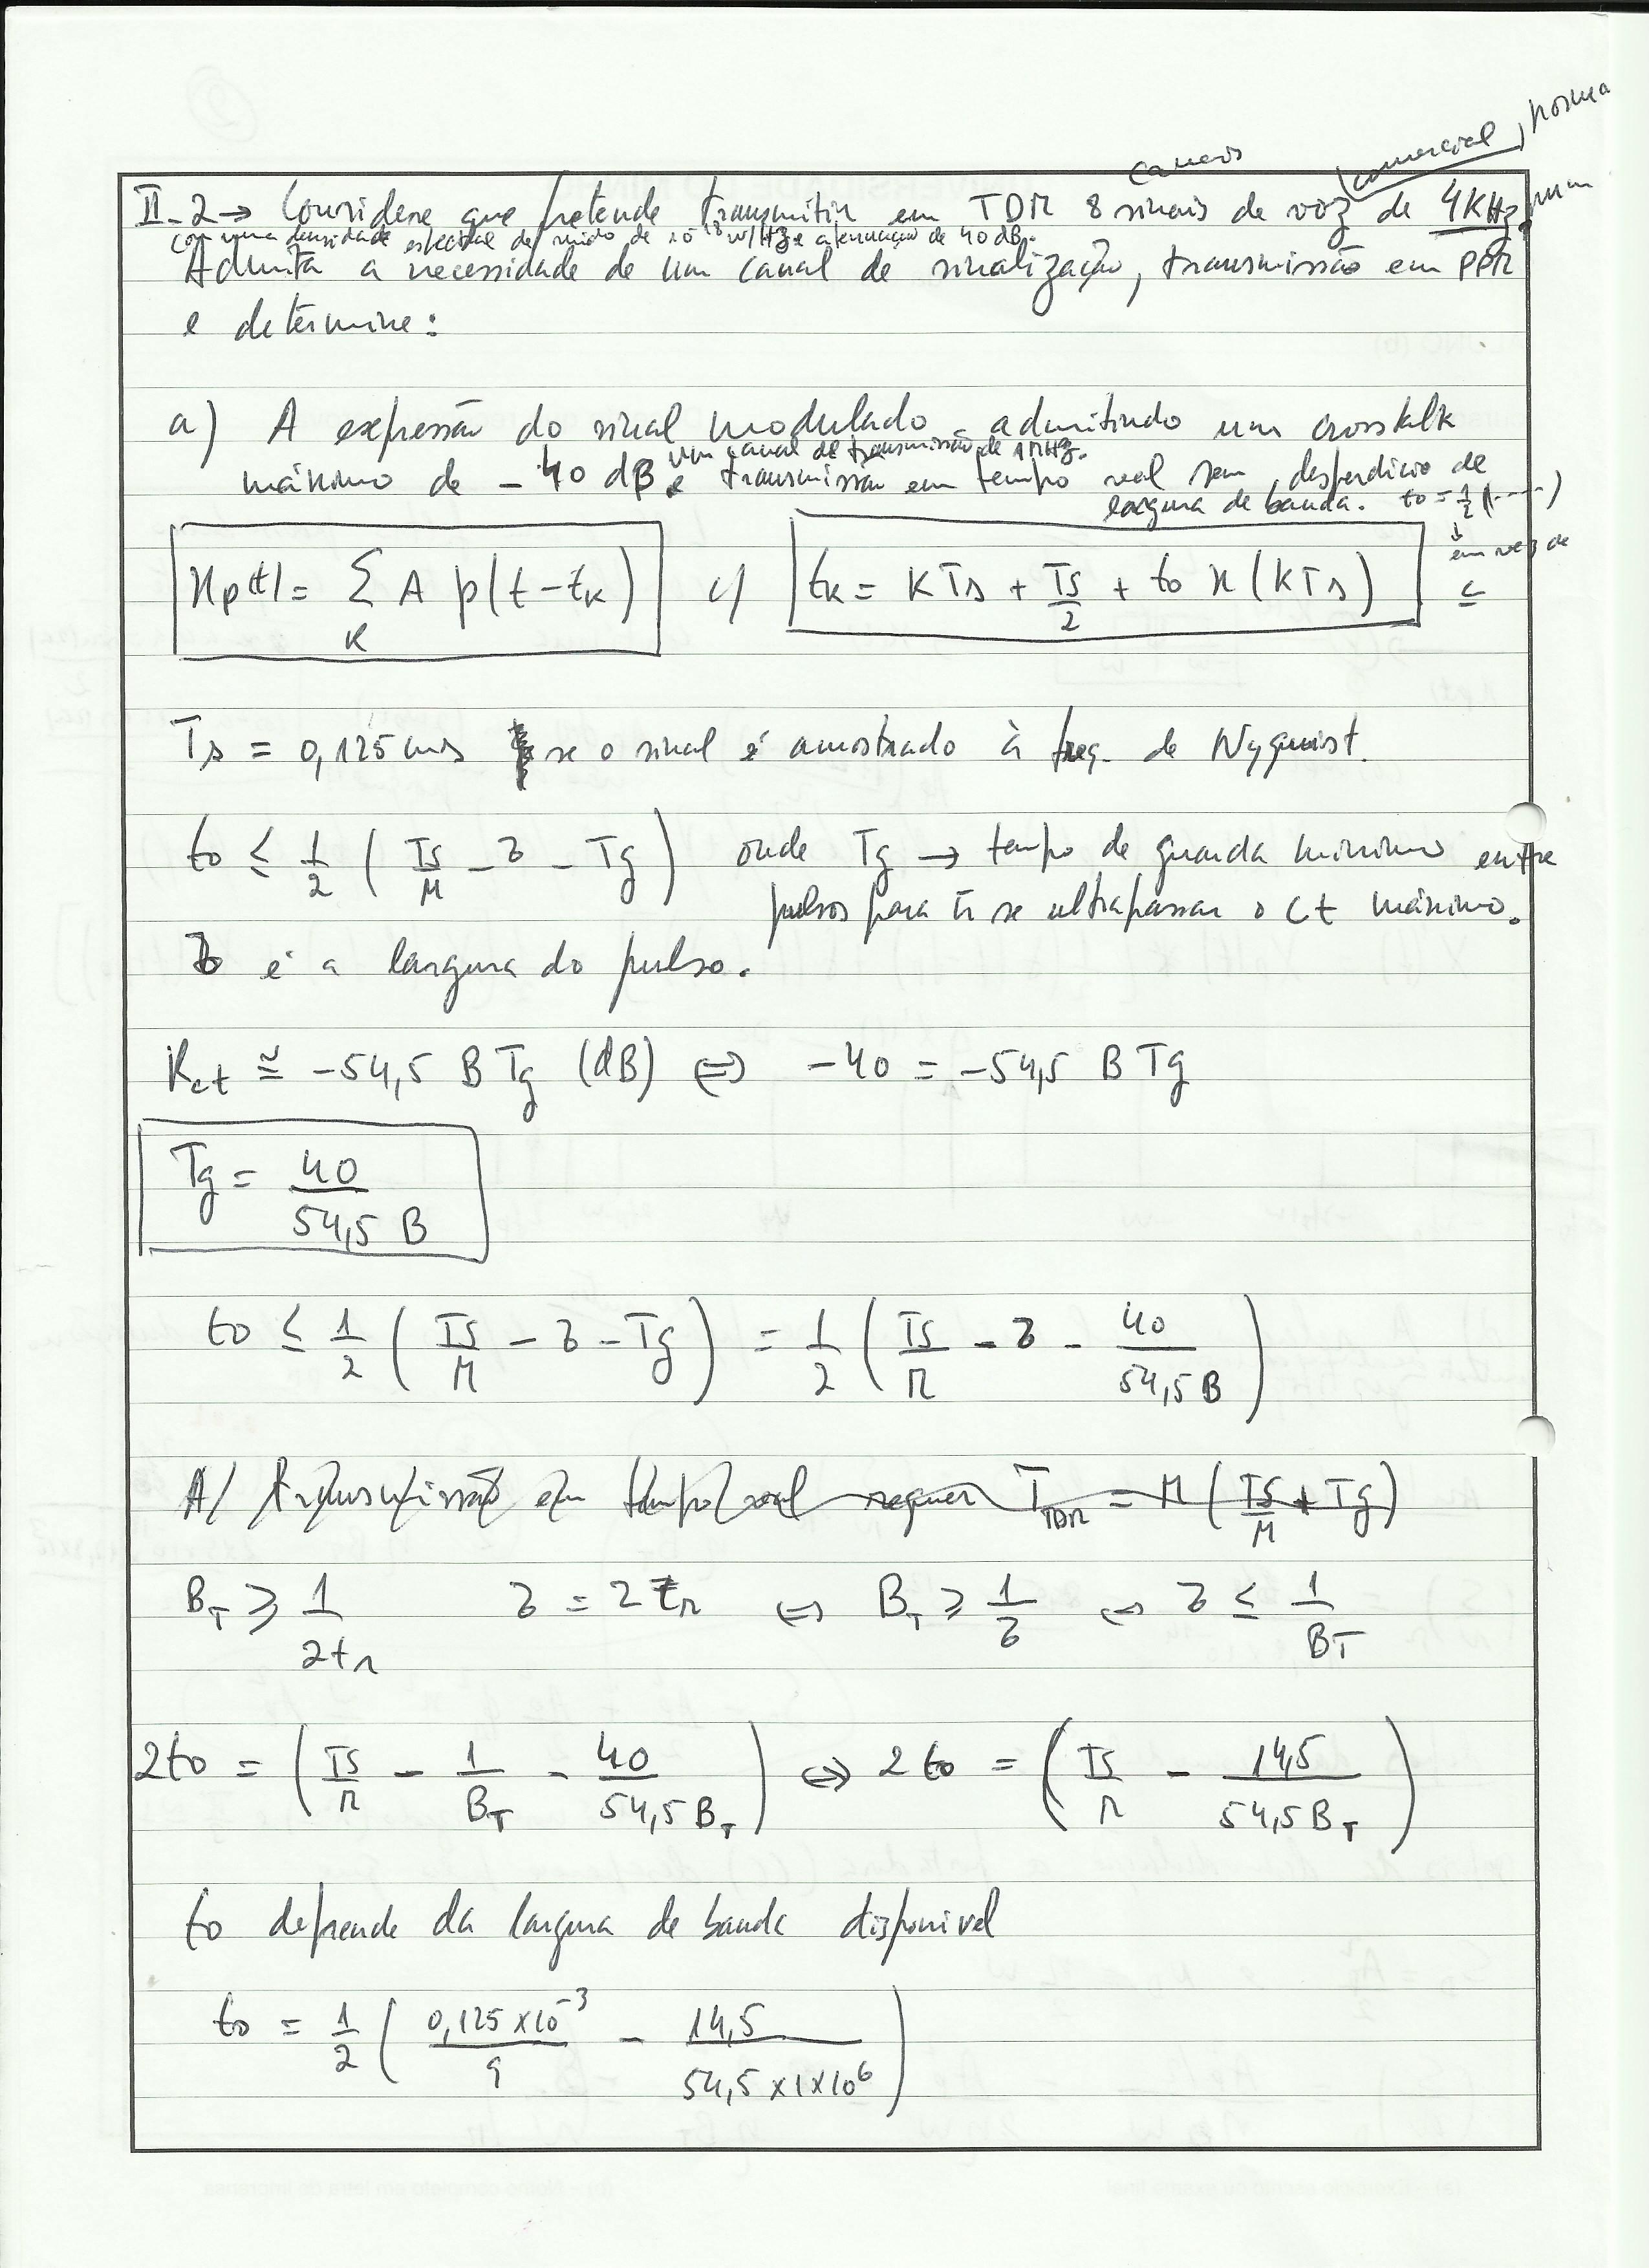 canais (comercial), norma
II-2 → Considere que pretende transmitir em TDM 8 sinais de voz de 4KHz, num
com uma densidade espectral de ruído de 10⁻¹⁸ W/Hz e atenuação de 40 dB.
Admita a necessidade de um canal de sinalização, transmissão em PPM
e determine:
a) A expressão do sinal modulado admitindo um crosstalk
um canal de transmissão de 1MHz.
máximo de -40 dB e transmissão em tempo real sem desperdício de
largura de banda. to = 1/2 (----)
xp(t) = Σ_K A p(t-tK) c/ tK = KTs + Ts/2 + to x(KTs)
em vez de ≤
Ts = 0,125 ms se o sinal é amostrado à freq. de Nyquist.
to ≤ 1/2 (Ts/M - τ - Tg) onde Tg → tempo de guarda mínimo entre
pulsos para ñ se ultrapassar o ct máximo.
τ é a largura do pulso.
Kct ≅ -54,5 B Tg (dB) ⇔ -40 = -54,5 B Tg
Tg = 40/54,5 B
to ≤ 1/2 (Ts/M - τ - Tg) = 1/2 (Ts/M - τ - 40/54,5B)
A/ transmissão em tempo real requer T_TDM = M (Ts/M + Tg)
BT ≥ 1/2tr τ = 2tr ⇔ BT ≥ 1/τ ⇔ τ ≤ 1/BT
2to = (Ts/M - 1/BT - 40/54,5BT) ⇔ 2to = (Ts/M - 14,5/54,5BT)
to depende da largura de banda disponivel
to = 1/2 (0,125×10⁻³/9 - 14,5/54,5×1×10⁶)